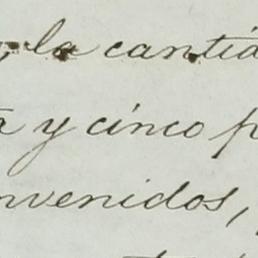 , la cantid
a y cinco p
nvenidos,